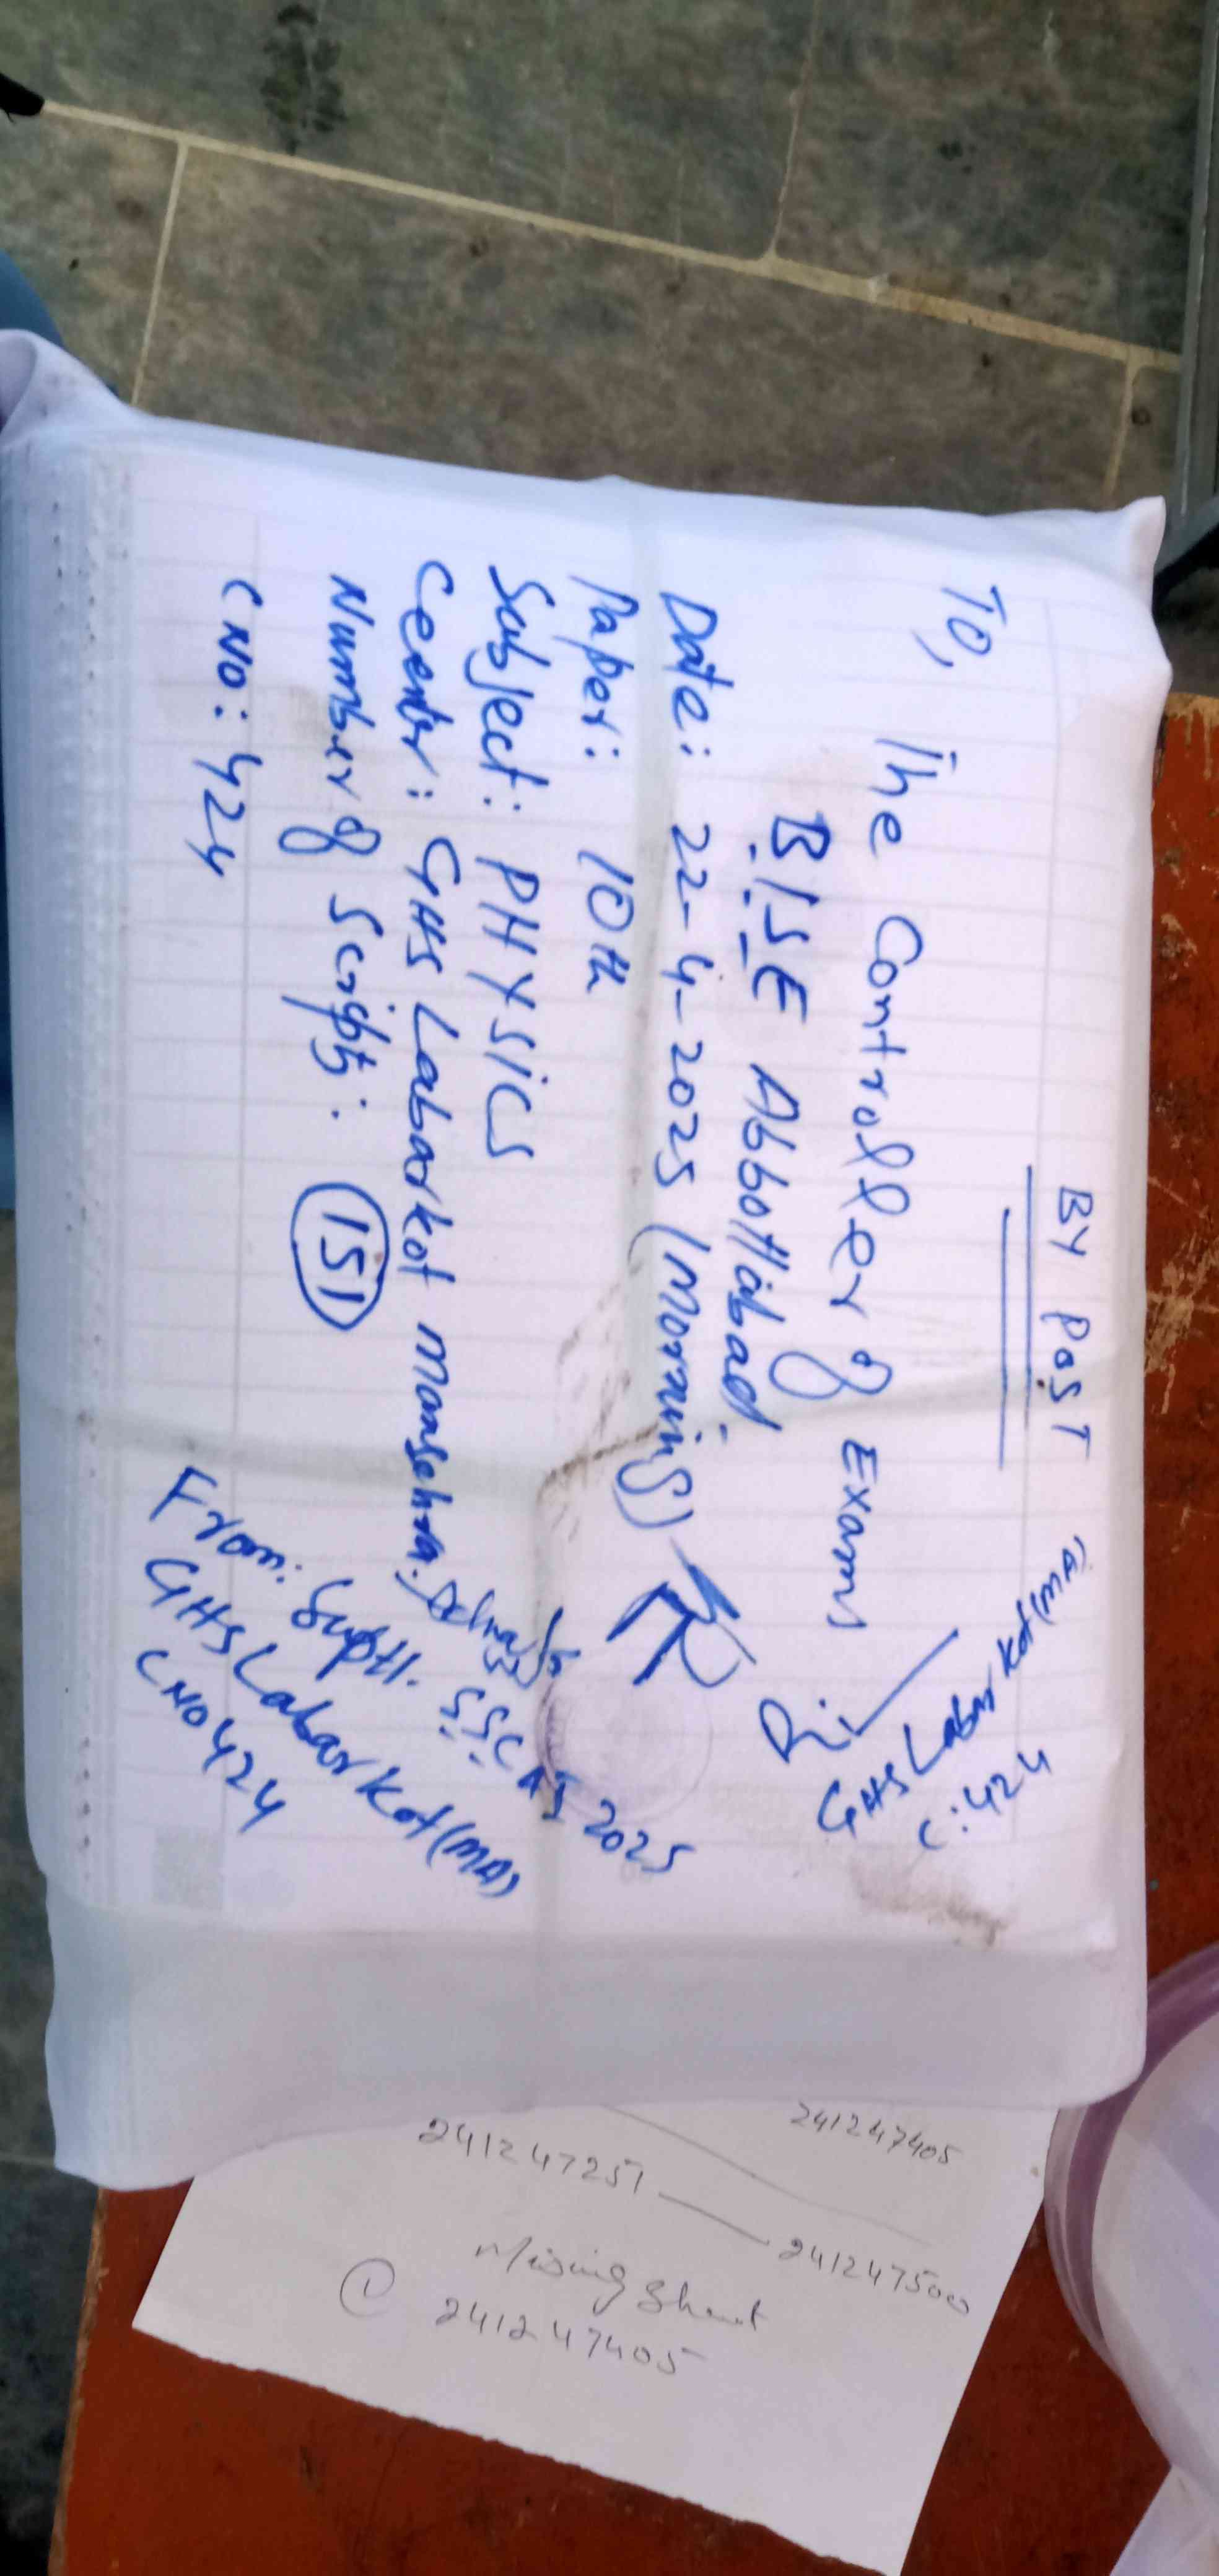 BY POST
To,
The Controller of Exams
B.I.S.E Abbottabad.
Date: 22-4-2025 (Morning)
Paper: 10th
Subject: PHYSICS
Center: GHS Labarkot Mansehra.
Number of Scripts: 151
CNO: 424
GHS Labarkot (MA)
C: 424
From: Suptt. SSC A5 2025
GHS Labarkot (MA)
CNO 424
241247405
241247251 — 241247500
Missing Sheet
1 241247405